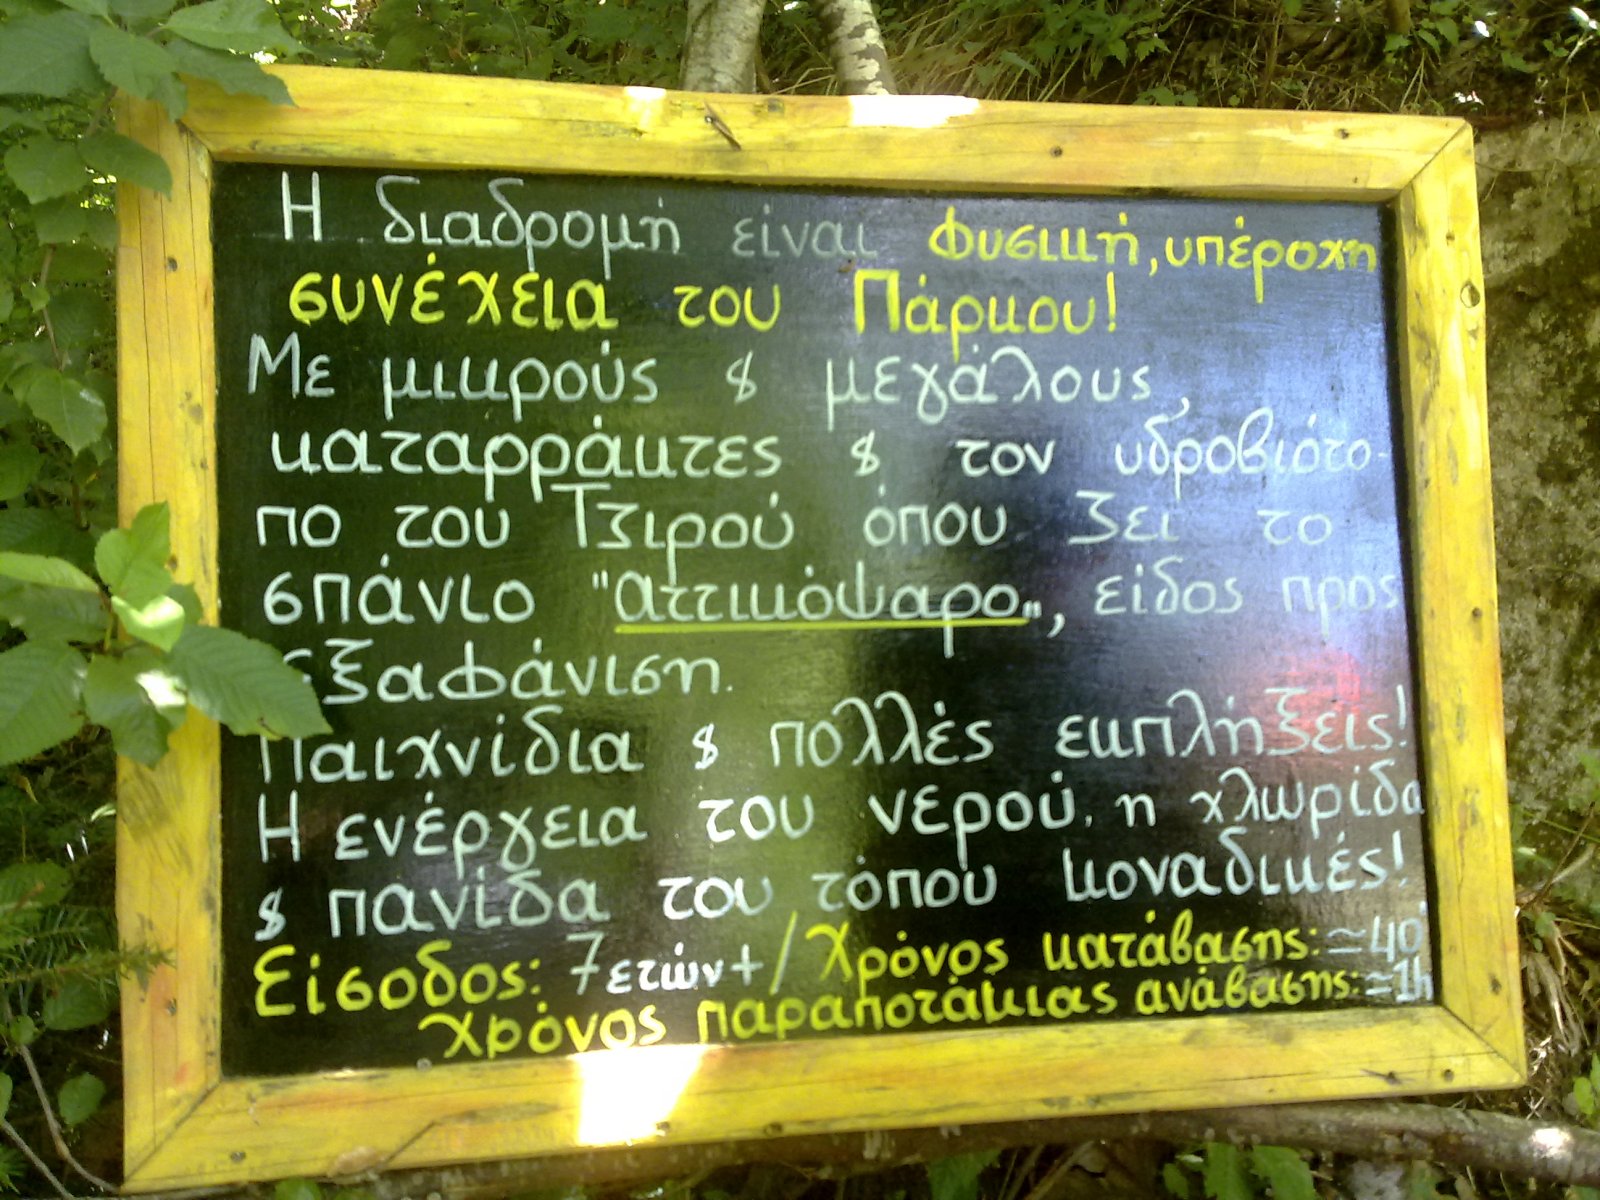 Η διαδρομή είναι φυσική, υπέροχη
συνέχεια του Πάρκου!
Με μικρούς & μεγάλους
καταρράκτες & τον υδροβιότο-
πο του Τζιρού όπου ζει το
σπάνιο "αττικόψαρο", είδος προς
εξαφάνιση.
Παιχνίδια & πολλές εκπλήξεις!
Η ενέργεια του νερού, η χλωρίδα
& πανίδα του τόπου μοναδικές!
Είσοδος: 7 ετών+/ Χρόνος κατάβασης: ≃40'
Χρόνος παραποτάμιας ανάβασης: ≃1h